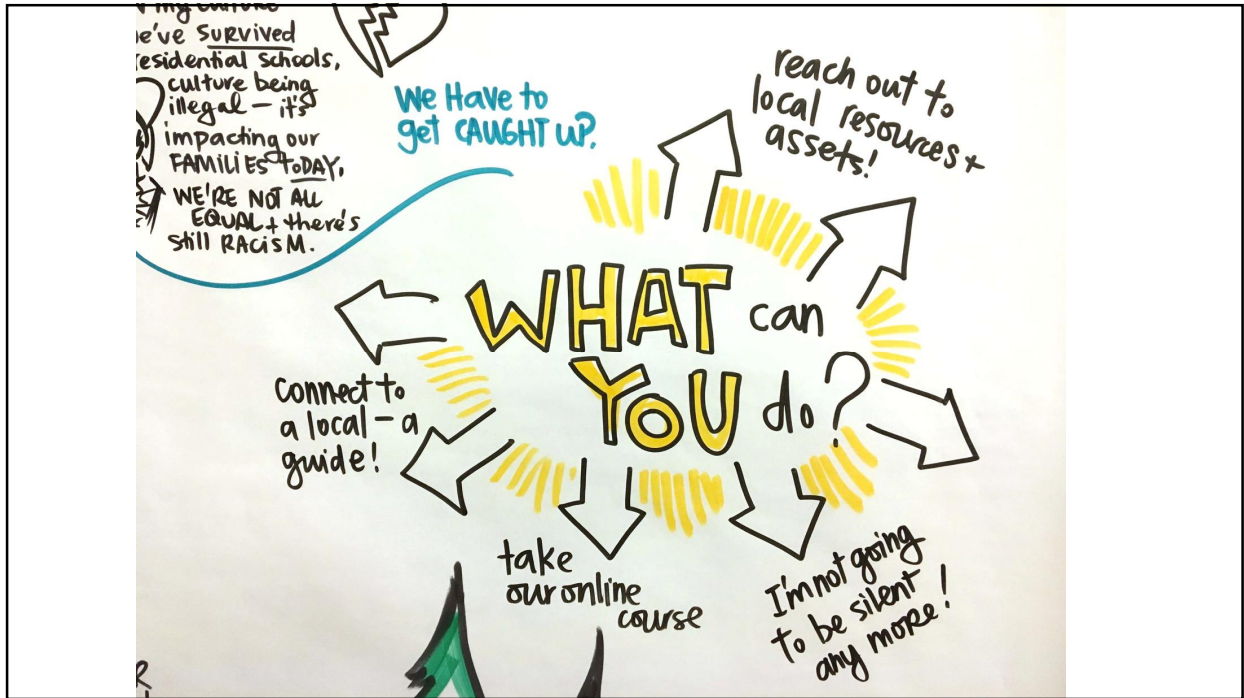 my culture
we've SURVIVED
residential schools,
culture being
illegal – it's
impacting our
FAMILIES TODAY.
WE'RE NOT ALL
EQUAL + there's
still RACISM.
We Have to
get CAUGHT UP.
reach out to
local resources +
assets!
WHAT can
YOU do?
connect to
a local – a
guide!
take
our online
course
I'm not going
to be silent
any more!
R